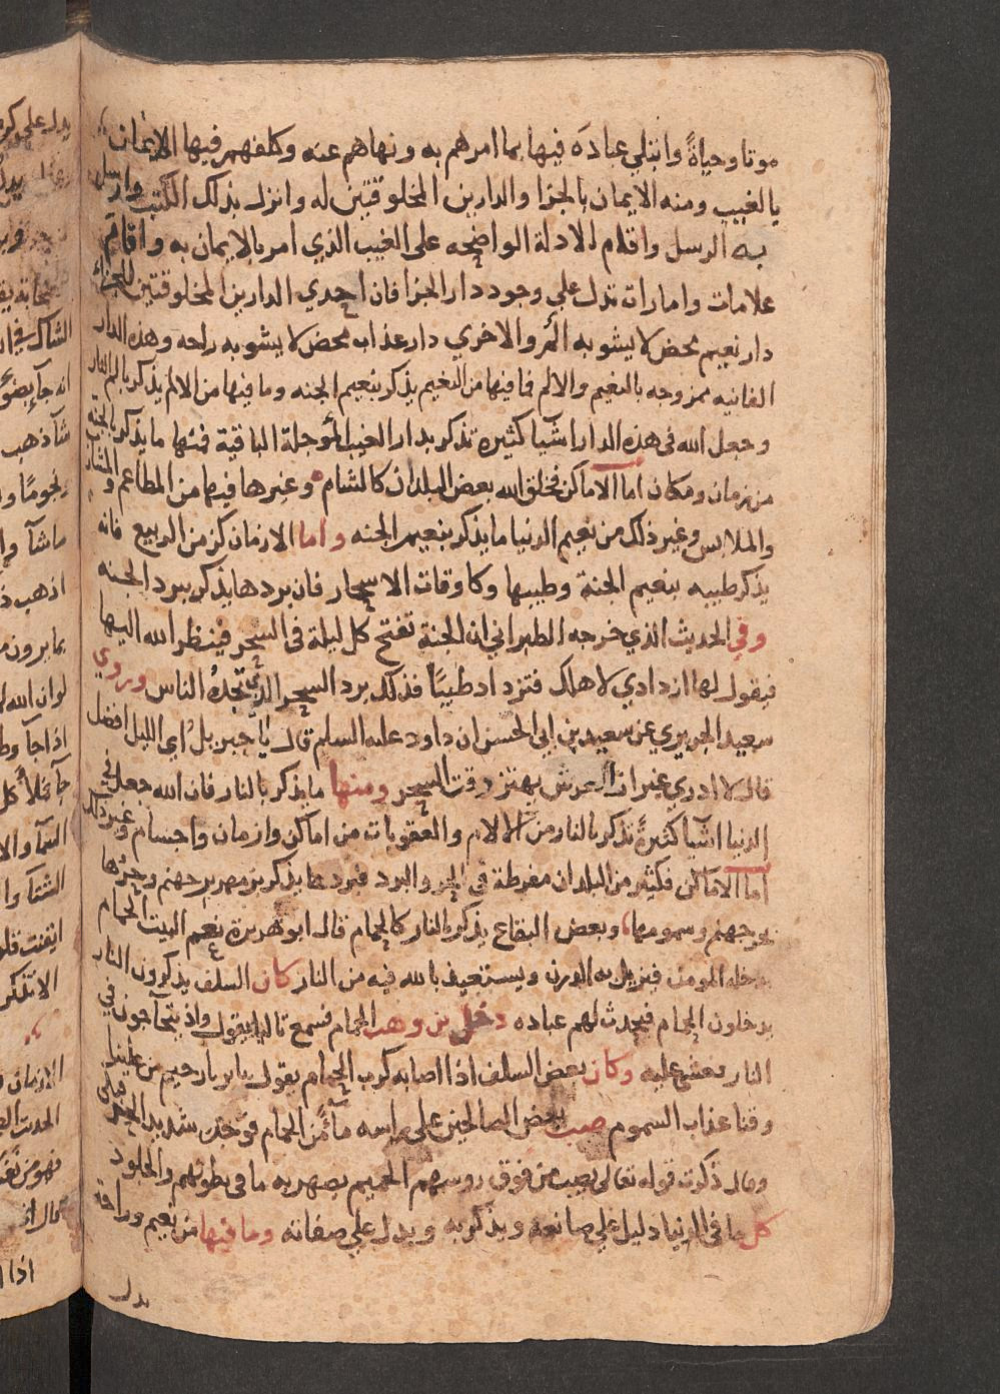 موتا وحياةً وابتلي عبادَه فيها بما امرهم به ونهاهم عنه وكلفهم فيها الايمان
بالغيب ومنه الايمان بالجزا والدارين المخلوقتين له وانزل بذلك الكتب وارسل
به الرسل واقام الادلة الواضحه على الغيب الذي امر بالايمان به واقام
علامات وامارات تدل علي وجود دار الجزا فان احدي الدارين المخلوقتين للجزاء
دار نعيم محض لا يشوبه الم والاخري دار عذاب محض لا يشوبه راحه وهذه الدار
الفانيه ممزوجه بالنعيم والالم فما فيها من النعيم يذكر بنعيم الجنه وما فيها من الالم يذكر بالم النار
وجعل الله في هذه الدار اشيا كثيره تذكر بدار الغيب المؤجلة الباقية فمنها ما يذكر بالجنة
من زمان ومكان اما الاماكن فخلق الله بعض البلدان كالشام وغيرها فيها من المطاعم والمشارب
والملابس وغير ذلك من نعيم الدنيا ما يذكر بنعيم الجنه واما الازمان كزمن الربيع فانه
يذكر طيبه بنعيم الجنة وطيبها وكاوقات الاسحار فان بردها يذكر ببرد الجنه
وفي الحديث الذي خرجه الطبراني ان الجنة تفتح كل ليلة في السحر فينظر الله اليها
فيقول لها ازدادي لاهلك فتزداد طيبًا فذلك برد السحر الذي تجدهُ الناس وروي
سعيد الجريري عن سعيد بن ابي الحسن ان داود عليه السلم قال يا جبريل اي الليل افضل
قال لا ادري غير ان العرش يهتز وقت السحر ومنها ما يذكر بالنار فان الله جعل في
الدنيا اشيا كثيرةً تذكر بالنار من الالام والعقوبات من اماكن وازمان واجسام وغير ذلك
اما الاماكن فكثير من البلدان مفرطة في الحر والبرد فبردها يذكر بزمهرير جهنم وحرها
بحر جهنم وسمومها وبعض البقاع يذكر بالنار كالحمام قال ابو هريرة نعم البيت الحمام
يدخله المومن فيزيل به الدرن ويستعيذ بالله فيه من النار كان السلف يذكرون النار
بدخلون الحمام فيحدث لهم عباده دخل بن وهب الحمام فسمع تاليا يقول واذ يتحاجون في
النار فغشي عليه وكان بعض السلف اذا اصابه كرب الحمام يقول يا بر يا رحيم من علينا
وقنا عذاب السموم صب بعض الصالحين علي راسه مآ من الحمام فوجده شديد الحر فبكي
وقال ذكرت قوله تعالى يصب من فوق روسهم الحميم يصهر به ما في بطونهم والجلود
كل ما في الدنيا دليل علي صانعه ويذكر به ويدل علي صفاته وما فيها من نعيم وراحة
يدل